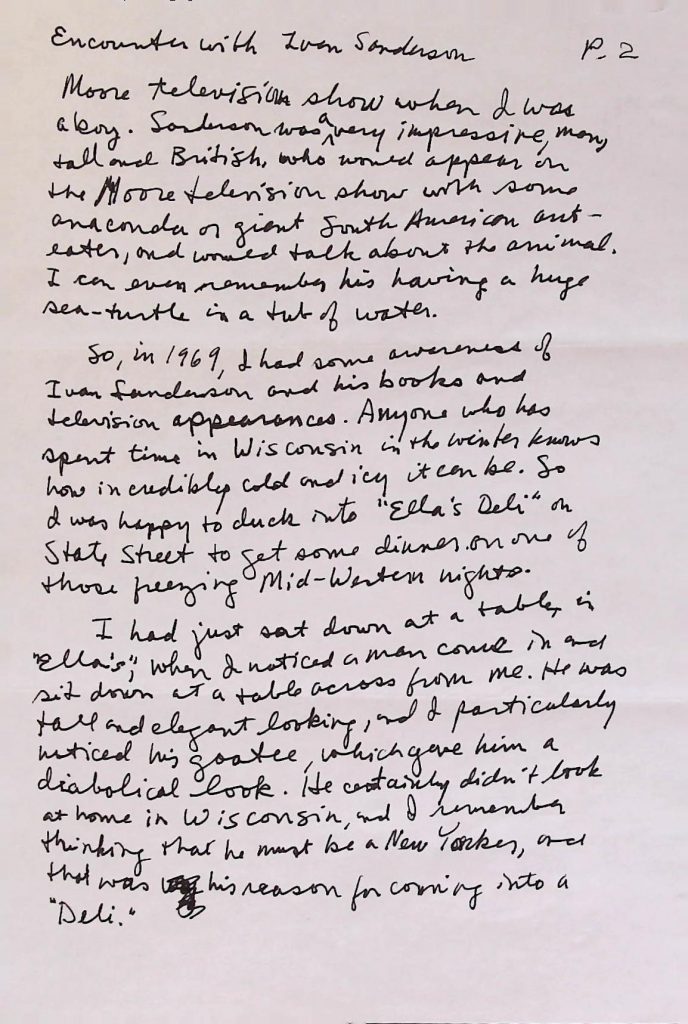 Encounter with Ivan Sanderson P. 2
Moore television show when I was
a boy. Sanderson was a very impressive, man,
tall and British, who would appear on
the Moore television show with some
anaconda or giant South American ant-
eater, and would talk about the animal.
I can even remember his having a huge
sea-turtle in a tub of water.
So, in 1969, I had some awareness of
Ivan Sanderson and his books and
television appearances. Anyone who has
spent time in Wisconsin in the winter knows
how incredibly cold and icy it can be. So
I was happy to duck into "Ella's Deli" on
State Street to get some dinner on one of
those freezing Mid-Western nights.
I had just sat down at a table, in
"Ella's", when I noticed a man come in and
sit down at a table across from me. He was
tall and elegant looking, and I particularly
noticed his goatee, which gave him a
diabolical look. He certainly didn't look
at home in Wisconsin, and I remember
thinking that he must be a New Yorker, and
that was his reason for coming into a
"Deli."